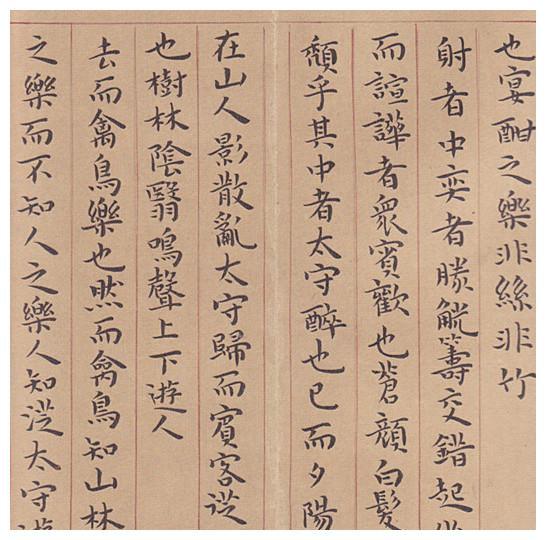 也宴酣之樂非絲非竹
射者中奕者勝觥籌交錯起坐
而諠譁者衆賓歡也蒼顏白髮
頹乎其中者太守醉也已而夕陽
在山人影散亂太守歸而賓客從
也樹林陰翳鳴聲上下遊人
去而禽鳥樂也然而禽鳥知山林
之樂而不知人之樂人知從太守遊